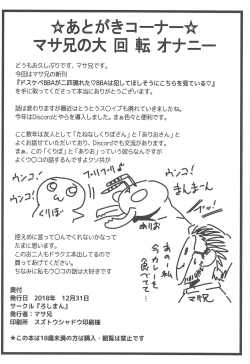 ☆あとがきコーナー☆
マサ兄の大 回 転 オナニー
どうもお久しぶりです、マサ兄です。
今回はマサ兄の新刊
『ドスケベBBAが二の腕んだ♡BBAは犯してほしそうにこちらを見ている♡』
を手に取ってくださって本当にありがとうございます。
話は変わりますが最近はとうとうス○イプも廃れていきましたね。
今年はDiscordとやらを導入しました。まぁ色々と便利です。
ここ数年は友人として「たねなしくりぼさん」と「ありおさん」と
よくお話させていただいており、Discordでも交流があります。
まぁ、この「くりぼ」と「ありお」っていう奴らなんですが
よくウ○コの話するんですよクソが
ウンコ!
ウンコ!
くりぼー
ありお
まんまーん
あの!今カレーを食べてて…
マサ兄
控えめに言って○んでくれないかなって
たまに思います。
このお二人もドラクエ本出してるので
買ってあげてください。
ちなみに私もウ○コの話は大好きです
奥付
発行日 2018年 12月31日
サークル『ろしまん』
発行者:マサ兄
印刷所 スズトウシャドウ印刷様
★この本は18歳未満の方は購入・閲覧は禁止です